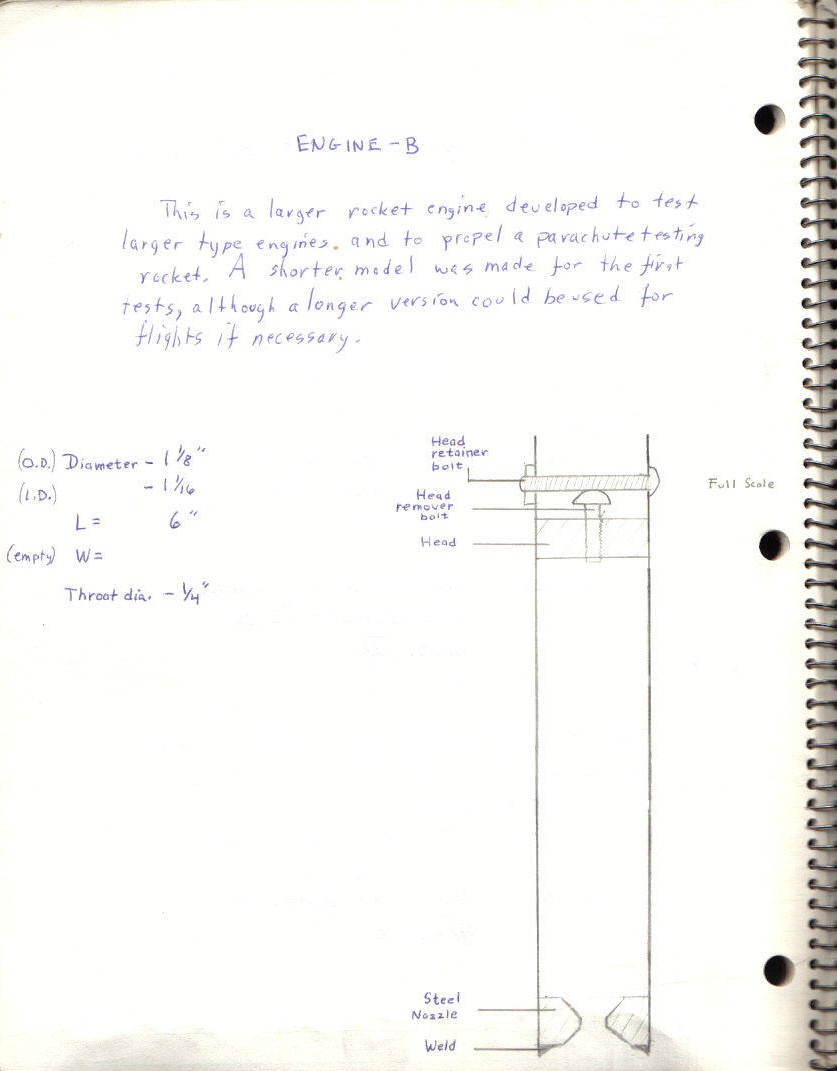 ENGINE - B
This is a larger rocket engine developed to test
larger type engines. and to propel a parachute testing
rocket. A shorter model was made for the first
tests, although a longer version could be used for
flights if necessary.
(O.D.) Diameter - 1 1/8"
(I.D.) - 1 1/16
L = 6"
(empty) W =
Throat dia. - 1/4"
Head
retainer
bolt
Head
remover
bolt
Head
Full Scale
Steel
Nozzle
Weld